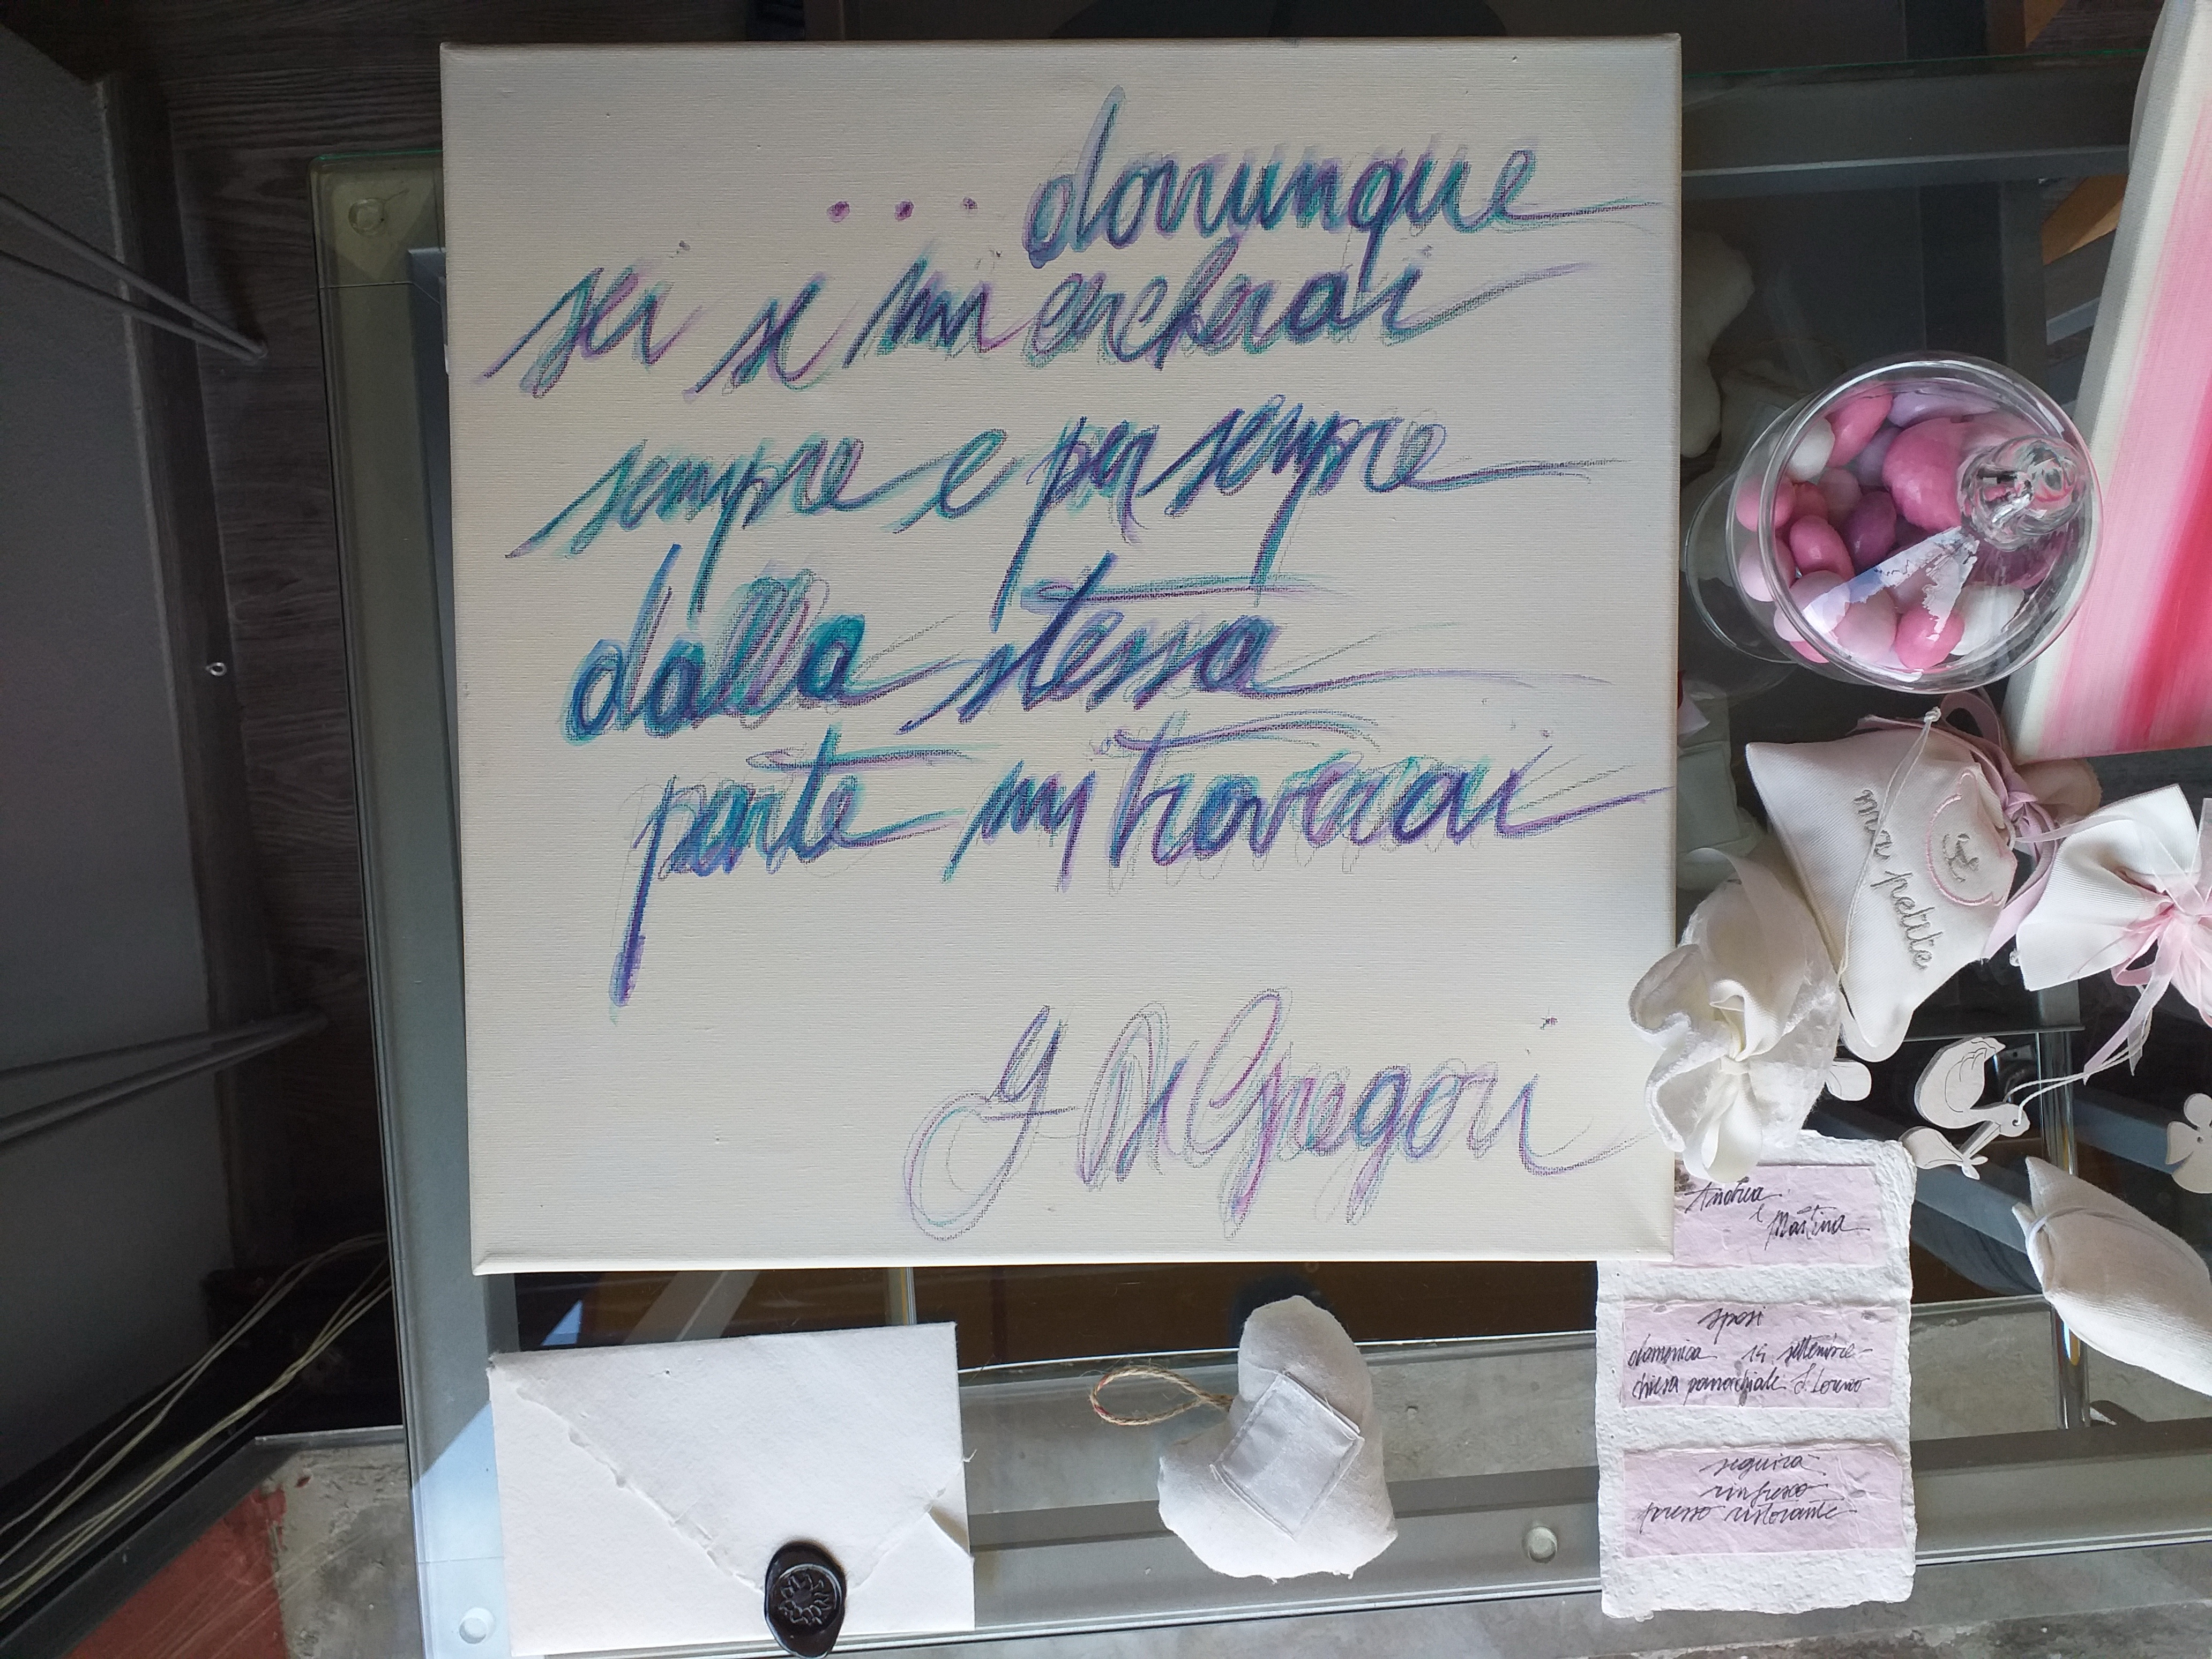 ... dovunque
sei se mi cercherai
sempre e per sempre
dalla stessa
parte my troverai
De Gregori
ma petite
Andrea
e Martina
sposi
domenica 14 settembre
chiesa parrochiale S. Lorenzo
seguirà
rinfresco
presso ristorante